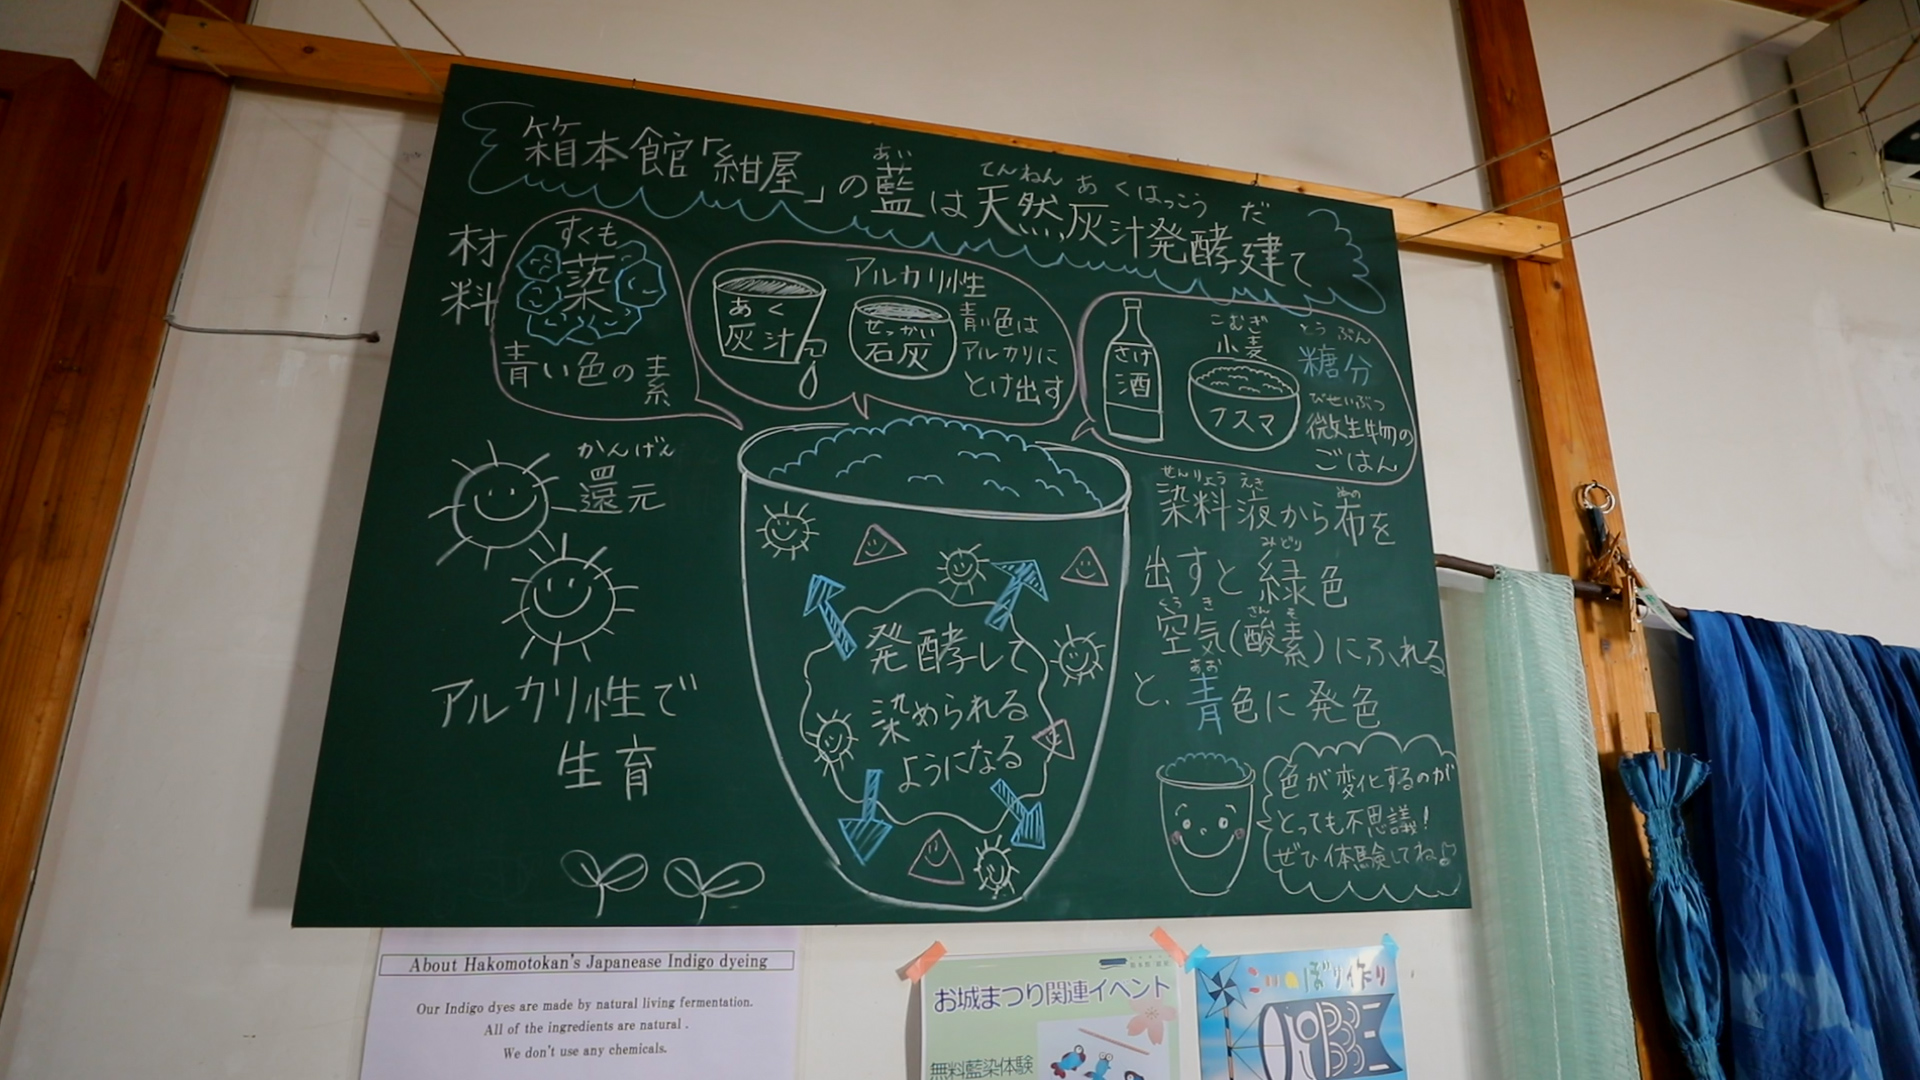 あい てんねん あくはっこう だ
箱本館「紺屋」の藍は天然灰汁発酵建て
材料
すくも
蒅
青い色の素
アルカリ性
あく
灰汁
せっかい
石灰
青い色は
アルカリに
とけ出す
さけ
酒
こむぎ
小麦
フスマ
とうぶん
糖分
びせいぶつ
微生物の
ごはん
かんげん
還元
アルカリ性で
生育
発酵して
染められる
ようになる
せんりょうえき ぬの
染料液から布を
みどり
出すと緑色
くうき さんそ
空気(酸素)にふれる
あお
と、青色に発色
色が変化するのが
とっても不思議!
ぜひ体験してね♪
About Hakomotokan's Japanease Indigo dyeing
Our Indigo dyes are made by natural living fermentation.
All of the ingredients are natural .
We don't use any chemicals.
お城まつり関連イベント
無料藍染体験
こいのぼり作り